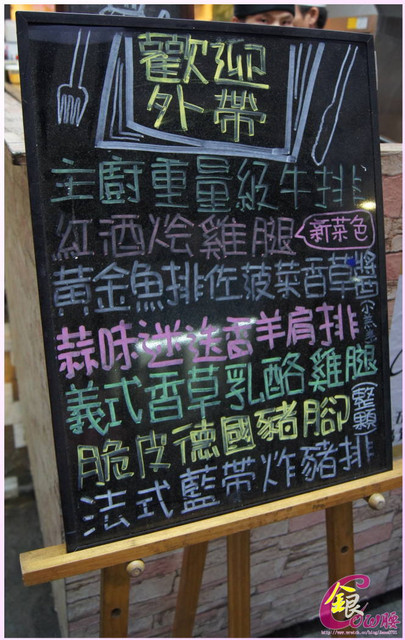 歡迎
外帶
主廚重量級牛排
紅酒燴雞腿 新菜色
黃金魚排佐菠菜香草醬
蒜味迷迭香羊肩排
義式香草乳酪雞腿
脆皮德國豬腳 整顆
法式藍帶炸豬排
銀
Cow勝